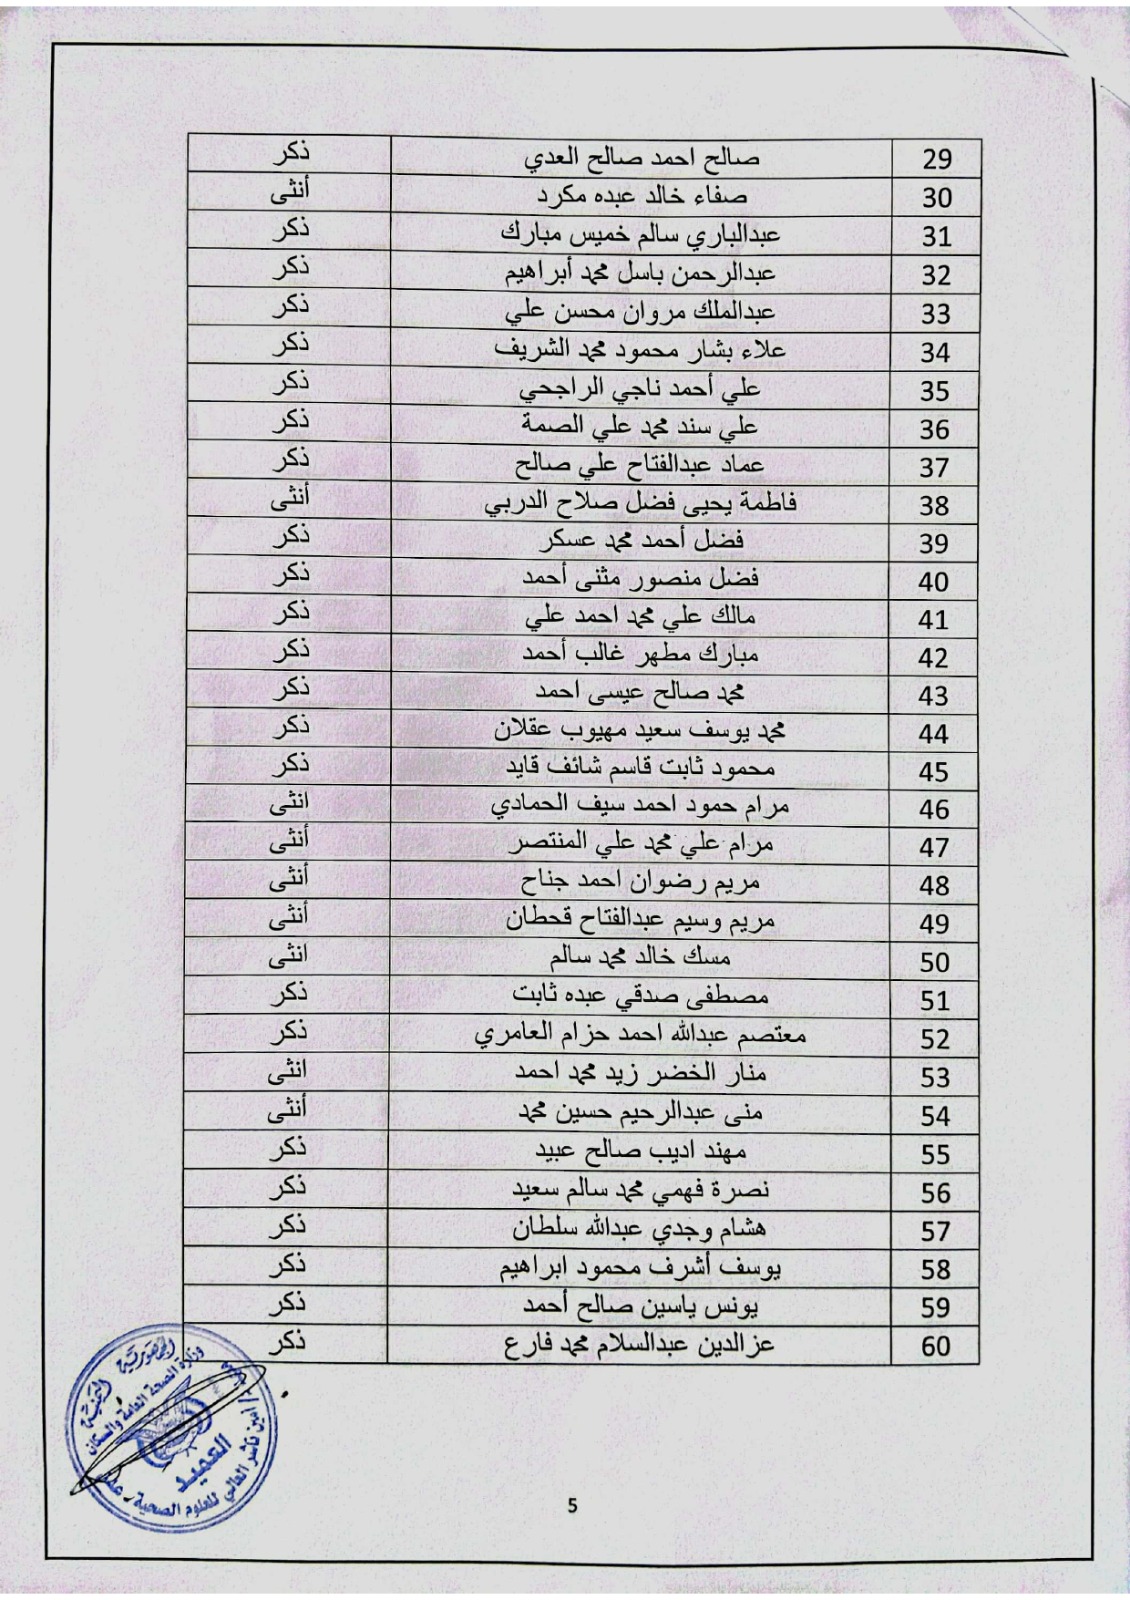 29 صالح احمد صالح العدي ذكر
30 صفاء خالد عبده مكرد أنثى
31 عبدالباري سالم خميس مبارك ذكر
32 عبدالرحمن باسل محمد أبراهيم ذكر
33 عبدالملك مروان محسن علي ذكر
34 علاء بشار محمود محمد الشريف ذكر
35 علي أحمد ناجي الراجحي ذكر
36 علي سند محمد علي الصمة ذكر
37 عماد عبدالفتاح علي صالح ذكر
38 فاطمة يحيى فضل صلاح الدربي أنثى
39 فضل أحمد محمد عسكر ذكر
40 فضل منصور مثنى أحمد ذكر
41 مالك علي محمد احمد علي ذكر
42 مبارك مطهر غالب أحمد ذكر
43 محمد صالح عيسى احمد ذكر
44 محمد يوسف سعيد مهيوب عقلان ذكر
45 محمود ثابت قاسم شائف قايد ذكر
46 مرام حمود احمد سيف الحمادي انثى
47 مرام علي محمد علي المنتصر أنثى
48 مريم رضوان احمد جناح أنثى
49 مريم وسيم عبدالفتاح قحطان أنثى
50 مسك خالد محمد سالم انثى
51 مصطفى صدقي عبده ثابت ذكر
52 معتصم عبدالله احمد حزام العامري ذكر
53 منار الخضر زيد محمد احمد انثى
54 منى عبدالرحيم حسين محمد أنثى
55 مهند اديب صالح عبيد ذكر
56 نصرة فهمي محمد سالم سعيد ذكر
57 هشام وجدي عبدالله سلطان ذكر
58 يوسف أشرف محمود ابراهيم ذكر
59 يونس ياسين صالح أحمد ذكر
60 عزالدين عبدالسلام محمد فارع ذكر
الجمهورية اليمنية
وزارة الصحة العامة والسكان
العميد
أمين ناشر العالي للعلوم الصحية
5